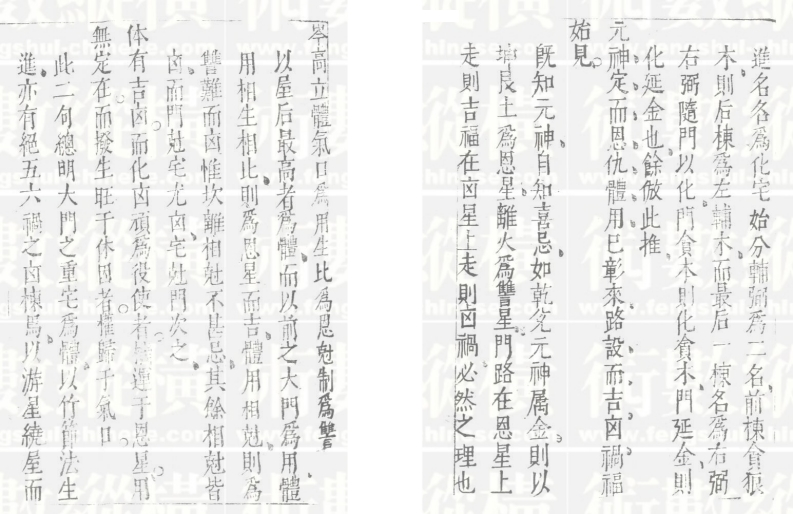 進名各爲化宅始分輔弼爲二名前棟貪狼
木則后棟爲左輔木而最后一棟名爲右弼
右弼隨門以化門貪木則化貪木門延金則
化延金也餘倣此推
元神定而恩仇體用已彰來路設而吉凶禍福
始見
旣知元神自知喜忌如乾兌元神屬金則以
坤艮土爲恩星離火爲讐星門路在恩星上
走則吉福在凶星上走則凶禍必然之理也
岑高立體氣口爲用生比爲恩尅制爲讐
以屋后最高者爲體而以前之大門爲用體
用相生相比則爲恩星而吉體用相尅則爲
讐難而凶惟坎離相尅不甚忌其餘相尅皆
凶而門尅宅尤凶宅尅門次之
体有吉凶而化凶頑爲役使者邊于恩星用
無定在而撥生旺于休囚者權歸于氣口
此二句總明大門之重宅爲體以竹節法生
進亦有絕五六禍之凶棟焉以游星繞屋而